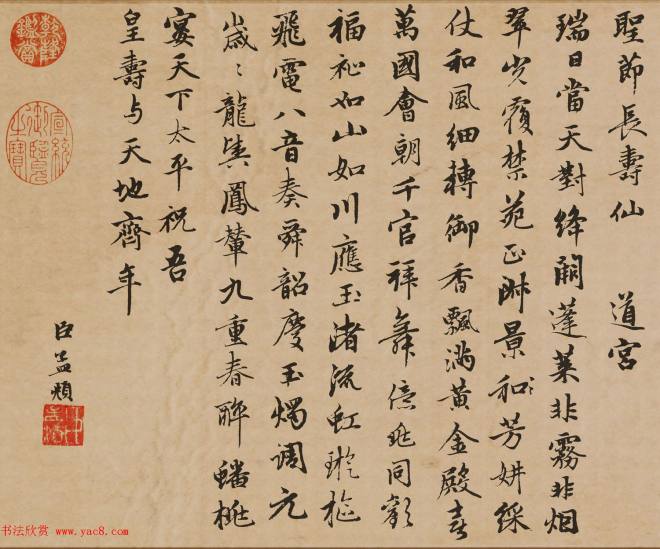 聖節長壽仙 道宮
瑞日當天對絳闕蓬萊非霧非烟
翠光覆禁苑正淑景和芳妍綵
仗和風細轉御香飄滿黃金殿喜
萬國會朝千官拜舞億兆同歡
福祉如山如川應玉渚流虹璇樞
飛電八音奏舜韶慶玉燭調元
歲〻龍輿鳳輦九重春醉蟠桃
宴天下太平祝吾
皇壽与天地齊年
臣孟頫
乾隆鑑賞
宣統御覽之寶
趙氏子昂
书法欣赏 www.yac8.com